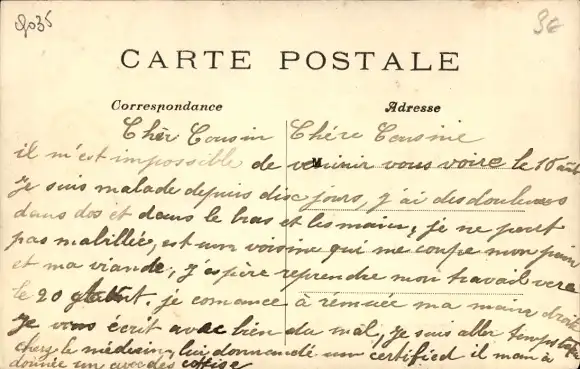 9035
CARTE POSTALE
Correspondance
Adresse
Chèr Cousin Chére Cousine
il m'est impossible de venirir vous voire le 10 août
Je suis malade depuis disc jours, j'ai des douleures
dans dos et dans le bras et les mains, je ne peut
pas mabillée, est une voisine qui me coupe mon pain
et ma viande, j'espère reprendre mon travail vere
le 20 je comance à rémuée ma main droite
Je vous écrit avec bien du mal, Je suis aller
chez le médecin, lui donmandé un certified il m'en à
donnée un avec des